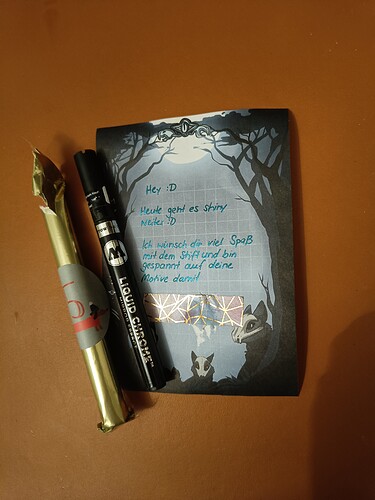 Hey :D
Heute geht es shiny
weiter :D
Ich wünsch dir viel Spaß
mit dem Stift und bin
gespannt auf deine
Motive damit
LIQUID CHROME™
5